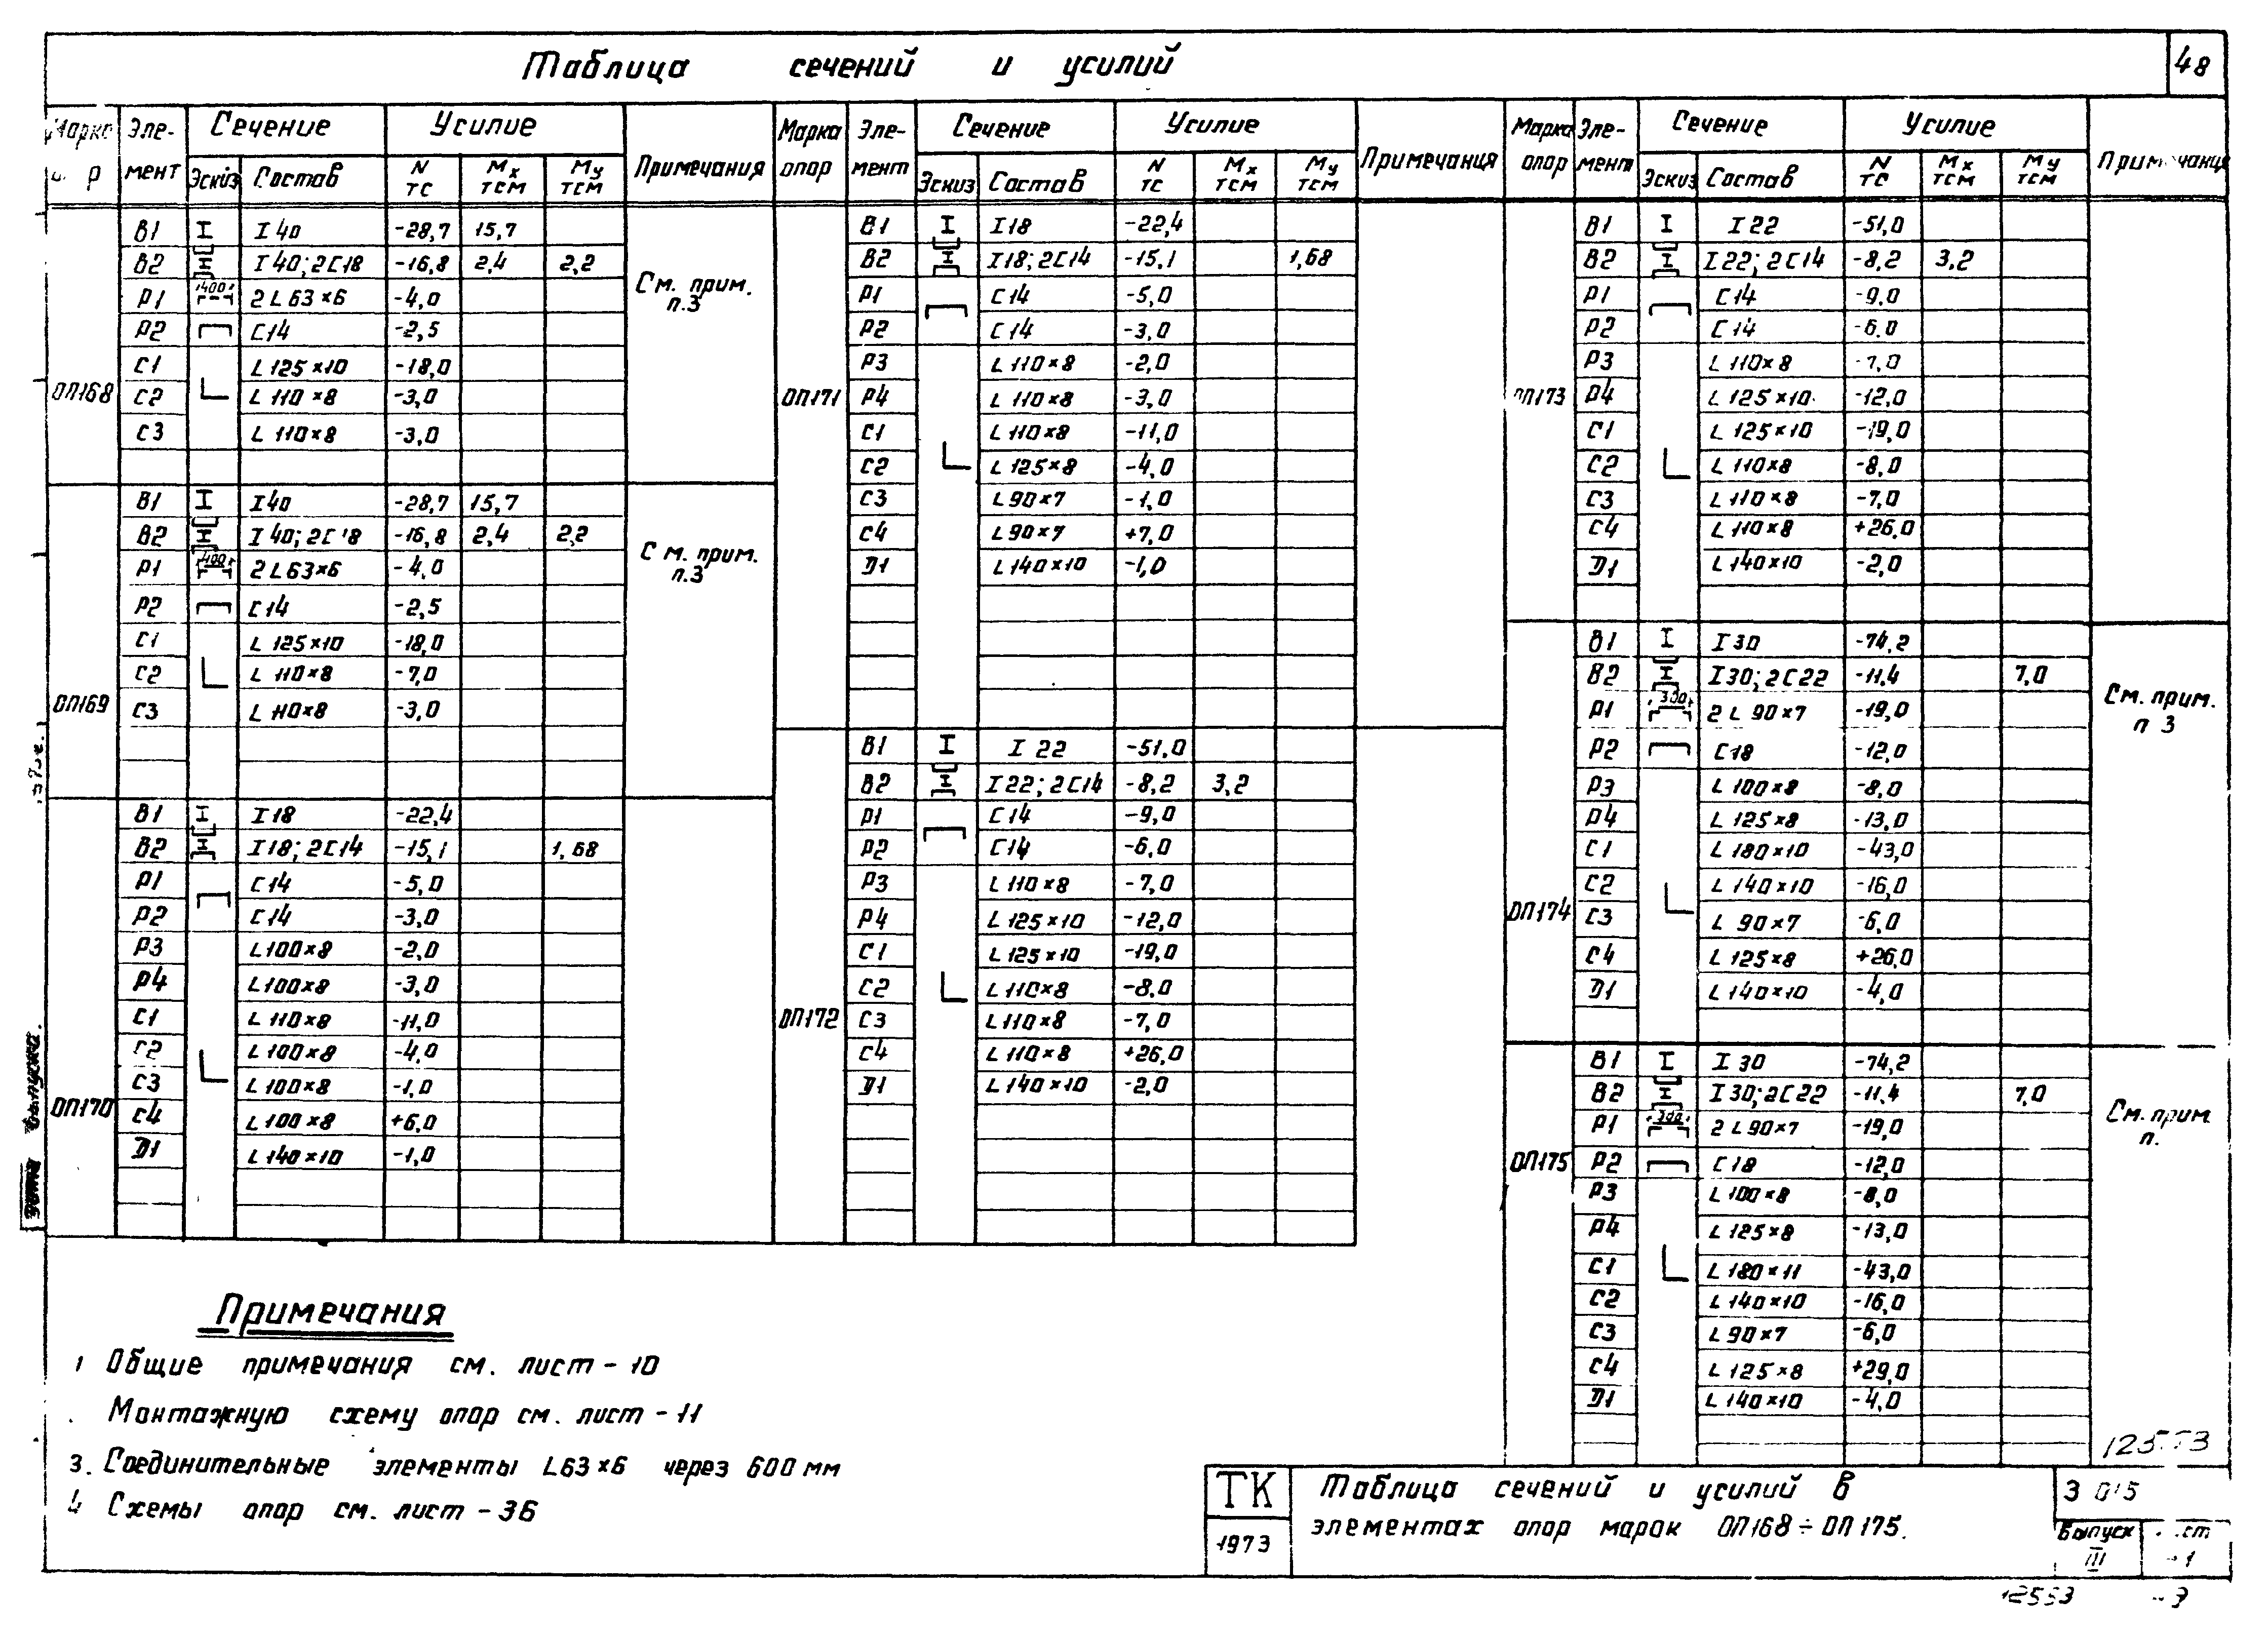 48
Таблица сечений и усилий
Марка опор Элемент Сечение Усилие Примечания
Эскиз Состав N тс Mx тсм My тсм
ОП168
В1 I 40 -28,7 15,7
В2 I 40; 2С18 -16,8 2,4 2,2
Р1 400 2 L 63×6 -4,0
Р2 С14 -2,5
С1 L 125×10 -18,0
С2 L 110×8 -3,0
С3 L 110×8 -3,0
См. прим.
п.3
ОП169
В1 I 40 -28,7 15,7
В2 I 40; 2С18 -16,8 2,4 2,2
Р1 400 2 L 63×6 -4,0
Р2 С14 -2,5
С1 L 125×10 -18,0
С2 L 110×8 -7,0
С3 L 110×8 -3,0
См. прим.
п.3
ОП170
В1 I 18 -22,4
В2 I 18; 2С14 -15,1 1,68
Р1 С14 -5,0
Р2 С14 -3,0
Р3 L 100×8 -2,0
Р4 L 100×8 -3,0
С1 L 110×8 -11,0
С2 L 100×8 -4,0
С3 L 100×8 -1,0
С4 L 100×8 +6,0
Д1 L 140×10 -1,0
Марка опор Элемент Сечение Усилие Примечания
Эскиз Состав N тс Mx тсм My тсм
ОП171
В1 I 18 -22,4
В2 I 18; 2С14 -15,1 1,68
Р1 С14 -5,0
Р2 С14 -3,0
Р3 L 110×8 -2,0
Р4 L 110×8 -3,0
С1 L 110×8 -11,0
С2 L 125×8 -4,0
С3 L 90×7 -1,0
С4 L 90×7 +7,0
Д1 L 140×10 -1,0
ОП172
В1 I 22 -51,0
В2 I 22; 2С14 -8,2 3,2
Р1 С14 -9,0
Р2 С14 -6,0
Р3 L 110×8 -7,0
Р4 L 125×10 -12,0
С1 L 125×10 -19,0
С2 L 110×8 -8,0
С3 L 110×8 -7,0
С4 L 110×8 +26,0
Д1 L 140×10 -2,0
Марка опор Элемент Сечение Усилие Примечания
Эскиз Состав N тс Mx тсм My тсм
ОП173
В1 I 22 -51,0
В2 I 22; 2С14 -8,2 3,2
Р1 С14 -9,0
Р2 С14 -6,0
Р3 L 110×8 -7,0
Р4 L 125×10 -12,0
С1 L 125×10 -19,0
С2 L 110×8 -8,0
С3 L 110×8 -7,0
С4 L 110×8 +26,0
Д1 L 140×10 -2,0
ОП174
В1 I 30 -74,2
В2 I 30; 2С22 -11,4 7,0
Р1 300 2 L 90×7 -19,0
Р2 С18 -12,0
Р3 L 100×8 -8,0
Р4 L 125×8 -13,0
С1 L 180×10 -43,0
С2 L 140×10 -16,0
С3 L 90×7 -6,0
С4 L 125×8 +26,0
Д1 L 140×10 -4,0
См. прим.
п 3
ОП175
В1 I 30 -74,2
В2 I 30; 2С22 -11,4 7,0
Р1 300 2 L 90×7 -19,0
Р2 С18 -12,0
Р3 L 100×8 -8,0
Р4 L 125×8 -13,0
С1 L 180×11 -43,0
С2 L 140×10 -16,0
С3 L 90×7 -6,0
С4 L 125×8 +29,0
Д1 L 140×10 -4,0
См. прим
п.
Примечания
1 Общие примечания см. лист - 10
Монтажную схему опор см. лист - 11
3. Соединительные элементы L63×6 через 600 мм
4 Схемы опор см. лист - 36
Дата выпуска.
ТК
1973
Таблица сечений и усилий в
элементах опор марок ОП168÷ОП175.
Выпуск
III
12553